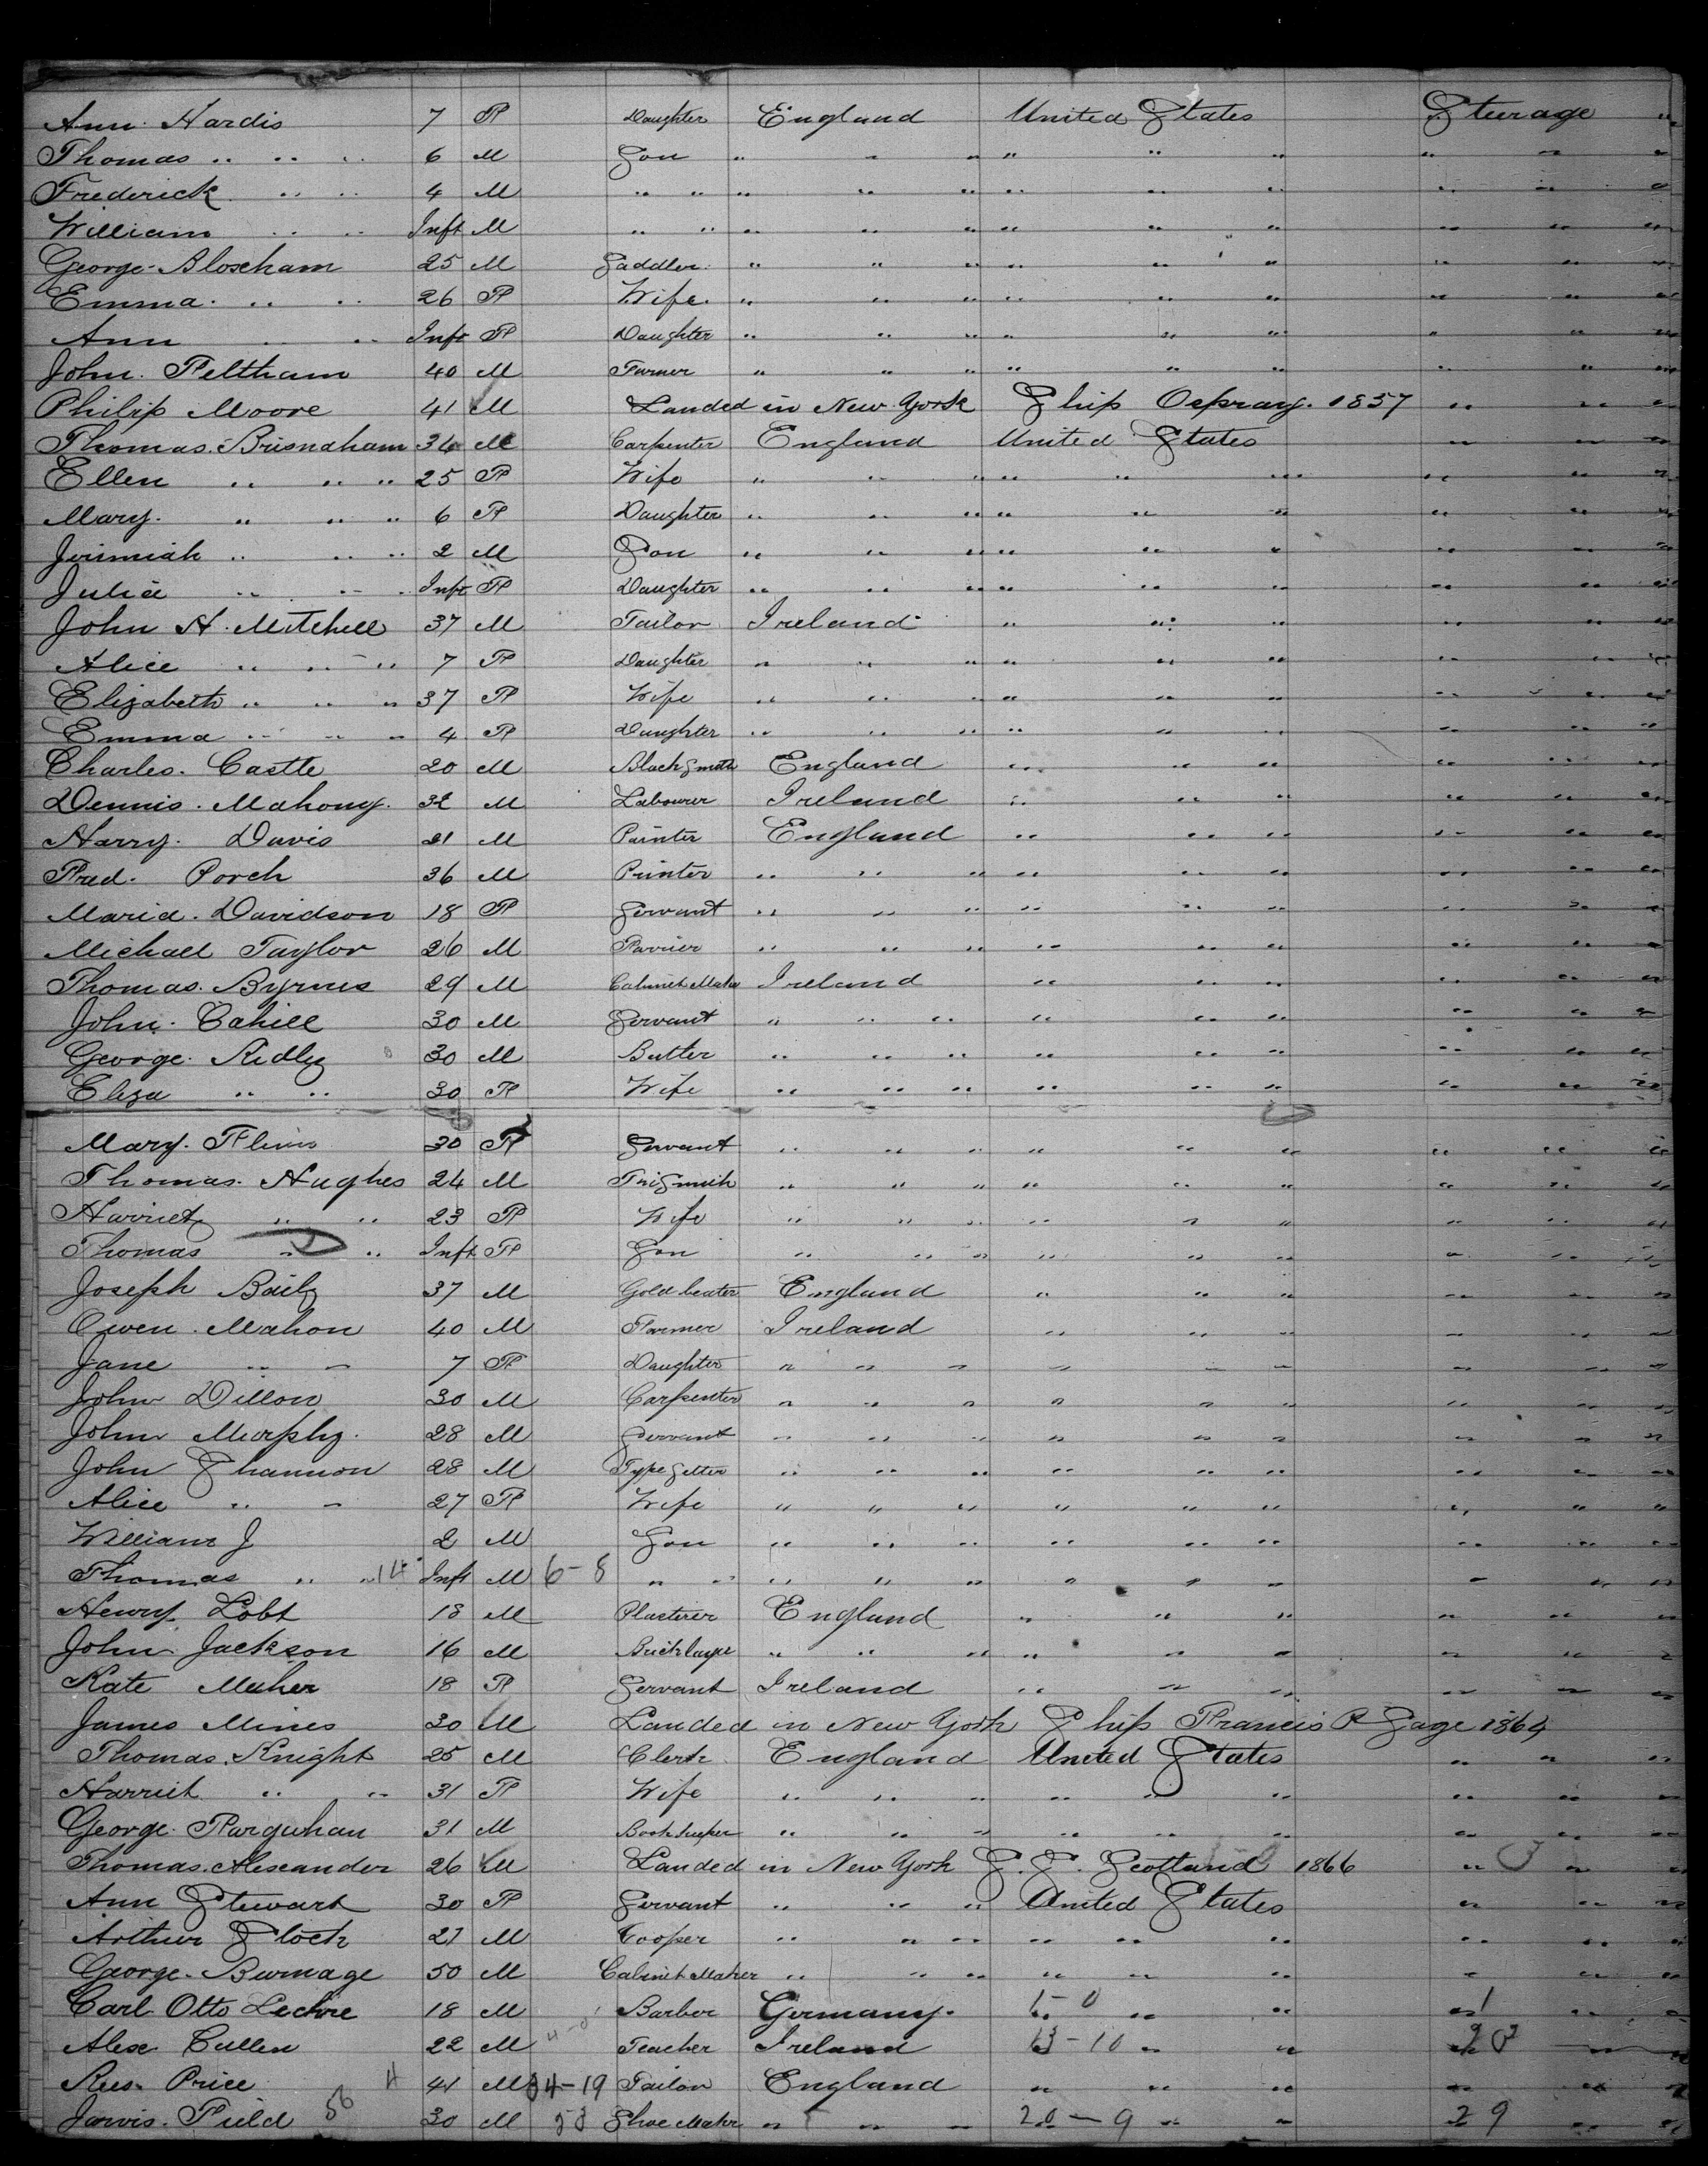 Ann Hardis 7 F Daughter England United States Steerage "
Thomas " " " 6 M Son " " " " " " " " "
Frederick " " 4 M " " " " " " " " " " "
William " " Inft M " " " " " " " " " " "
George Bloxham 25 M Saddler " " " " " " " " "
Emma " " 26 F Wife " " " " " " " " "
Ann " " Inft F Daughter " " " " " " " " "
John Feltham 40 M Farmer " " " " " " " " "
Philip Moore 41 M Landed in New York Ship Ospray 1857 " " "
Thomas Brisnaham 34 M Carpenter England United States " " "
Ellen " " " 25 F Wife " " " " " " " " "
Mary " " " 6 F Daughter " " " " " " " " "
Jerimiah " " " 2 M Son " " " " " " " " "
Julia " " " Inft F Daughter " " " " " " " " "
John H. Mitchell 37 M Tailor Ireland " " " " " "
Alice " " " 7 F Daughter " " " " " " " " "
Elizabeth " " " 37 F Wife " " " " " " " " "
Emma " " " 4 F Daughter " " " " " " " " "
Charles Castle 20 M Black Smith England " " " " " "
Dennis Mahony 32 M Labourer Ireland " " " " " "
Harry Davis 21 M Painter England " " " " " "
Fred. Porch 36 M Printer " " " " " " " " "
Maria Davidson 18 F Servant " " " " " " " " "
Michael Taylor 26 M Farrier " " " " " " " " "
Thomas Byrnes 29 M Cabinet Maker Ireland " " " " " "
John Cahill 30 M Servant " " " " " " " " "
George Ridly 30 M Butler " " " " " " " " "
Eliza " " 30 F Wife " " " " " " " " "
Mary 30 F Servant " " " " " " " " "
Thomas Hughes 24 M Tin Smith " " " " " " " " "
Harriet " " 23 F Wife " " " " " " " " "
Thomas " " Inft F Son " " " " " " " " "
Joseph Baily 37 M Gold beater England " " " " " "
Owen Mahon 40 M Farmer Ireland " " " " " "
Jane " " 7 F Daughter " " " " " " " " "
John Dillon 30 M Carpenter " " " " " " " " "
John Murphy 28 M Servant " " " " " " " " "
John Shannon 28 M Type Setter " " " " " " " " "
Alice " " 27 F Wife " " " " " " " " "
William J 2 M Son " " " " " " " " "
Thomas " " 14 Inft M 6-8 " " " " " " " " " " "
Henry Lobt 18 M Plasterer England " " " " " "
John Jackson 16 M Bricklayer " " " " " " " " "
Kate Meher 18 F Servant Ireland " " " " " "
James Mines 30 M Landed in New York Ship Francis P Sage 1864
Thomas Knight 25 M Clerk England United States " " "
Harriet " " 31 F Wife " " " " " " " " "
George Farquhan 31 M Book keeper " " " " " " " " "
Thomas Alexander 26 M Landed in New York S.S. Scotland 1866 " " "
Ann Stewart 30 F Servant " " " United States " " "
Arthur Slock 27 M Cooper " " " " " " " " "
George Burnage 50 M Cabinet Maker " " " " " " " " "
Carl Otto 18 M Barber Germany 1-0 " " " 1 " "
Alex Cullen 22 M Teacher Ireland 13-10 " " " " "
Rees Price 4 41 M 34-19 Tailor England " " " " " "
Jarvis Field 56 30 M 53 Shoe Maker " " " 20-9 " " 29 " "